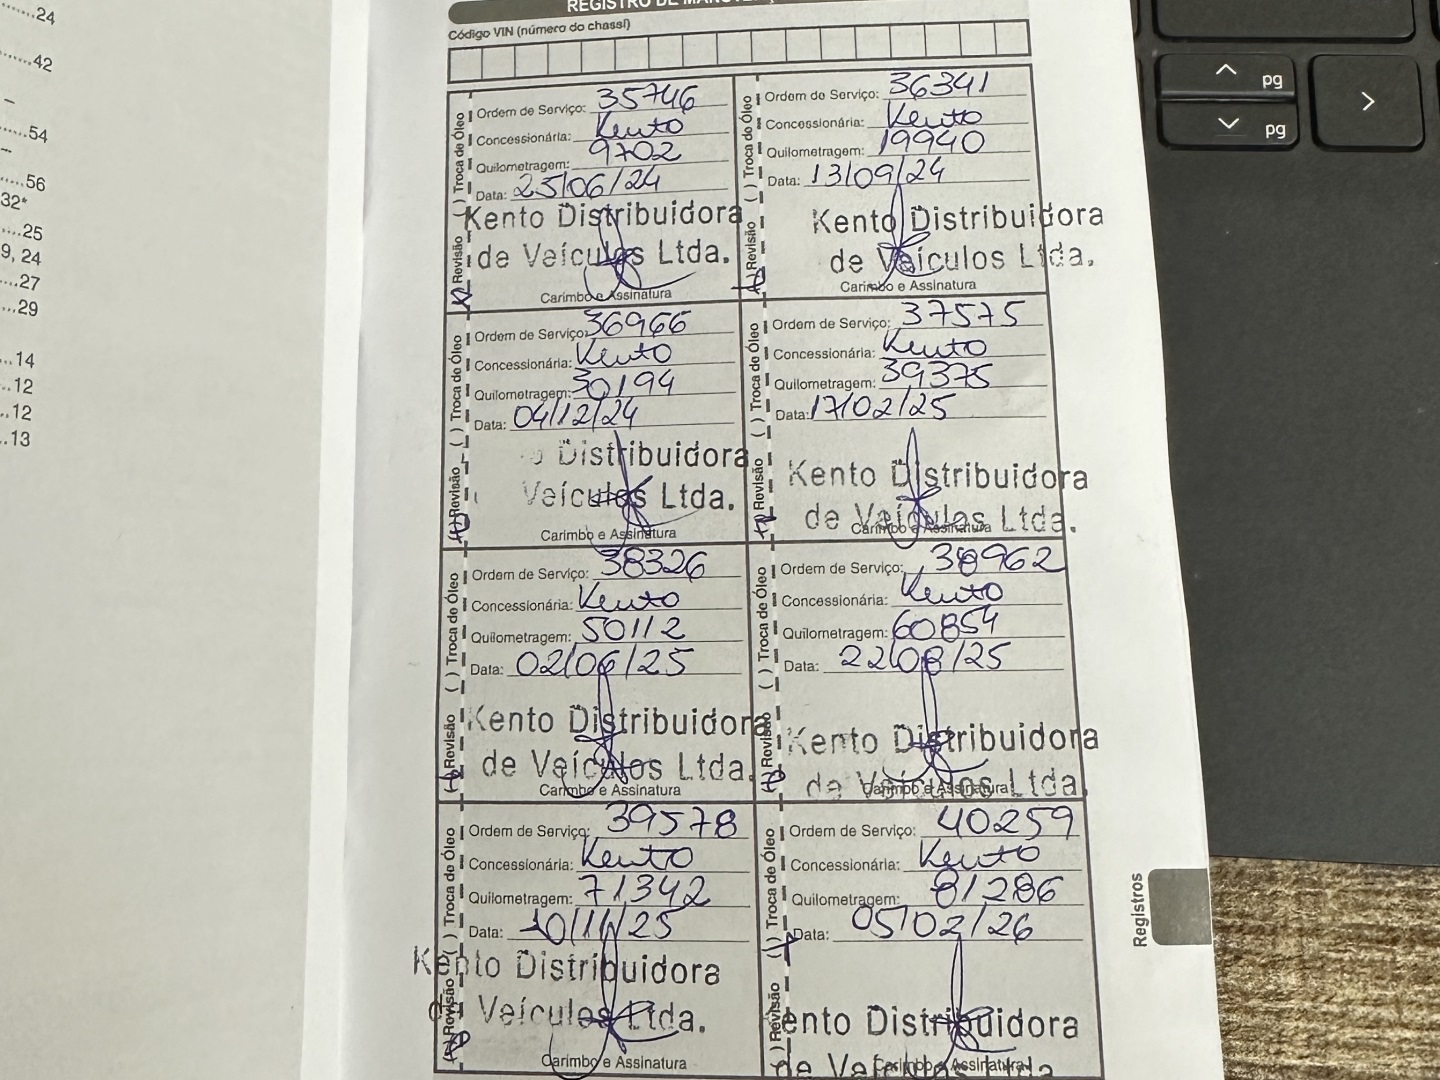 .......24
.......42
–
......54
–
.....56
32*
....25
9, 24
....27
...29
...14
...12
..12
..13
pg
pg
REGISTRO DE
Código VIN (número do chassi)
( ) Troca de Óleo
Revisão
Ordem de Serviço: 35746
Concessionária: Kento
Quilometragem: 9702
Data: 25/06/24
Kento Distribuidora
de Veículos Ltda.
Carimbo e Assinatura
( ) Troca de Óleo
Revisão
Ordem de Serviço: 36341
Concessionária: Kento
Quilometragem: 19940
Data: 13/09/24
Kento Distribuidora
de Veículos Ltda.
Carimbo e Assinatura
( ) Troca de Óleo
Revisão
Ordem de Serviço: 36966
Concessionária: Kento
Quilometragem: 30194
Data: 04/12/24
o Distribuidora
Veículos Ltda.
Carimbo e Assinatura
( ) Troca de Óleo
Revisão
Ordem de Serviço: 37575
Concessionária: Kento
Quilometragem: 39375
Data: 17/02/25
Kento Distribuidora
de Veículos Ltda.
Carimbo e Assinatura
( ) Troca de Óleo
Revisão
Ordem de Serviço: 38326
Concessionária: Kento
Quilometragem: 50112
Data: 02/06/25
Kento Distribuidora
de Veículos Ltda.
Carimbo e Assinatura
( ) Troca de Óleo
Revisão
Ordem de Serviço: 38962
Concessionária: Kento
Quilometragem: 60854
Data: 22/08/25
Kento Distribuidora
de Veículos Ltda.
Carimbo e Assinatura
( ) Troca de Óleo
Revisão
Ordem de Serviço: 39578
Concessionária: Kento
Quilometragem: 71342
Data: 10/11/25
Kento Distribuidora
de Veículos Ltda.
Carimbo e Assinatura
( ) Troca de Óleo
Revisão
Ordem de Serviço: 40259
Concessionária: Kento
Quilometragem: 81286
Data: 05/02/26
Kento Distribuidora
de Veículos Ltda
Carimbo e Assinatura
Registros